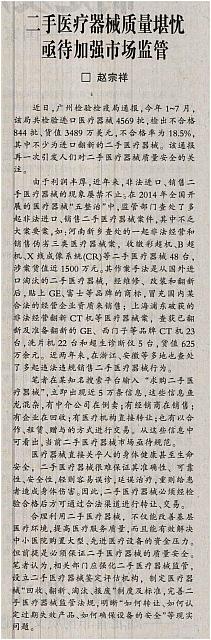 二手医疗器械质量堪忧
亟待加强市场监管
□ 赵宗祥
近日,广州检验检疫局通报,今年1~7月,
该局共检验进口医疗器械4569批,检出不合格
844批,货值3489万美元,不合格率为18.5%,
其中不少为进口翻新的二手医疗器械。该通报
再一次引发人们对二手医疗器械质量安全的关
注。
由于利润丰厚,近年来,非法进口、销售二
手医疗器械的现象屡禁不止,在2014年全国开
展的医疗器械“五整治”中,监管部门查处了多
起非法进口、销售二手医疗器械案件,其中不乏
大案要案,如:河南新乡查处的一起非法经营和
销售伪劣三类医疗器械案,收缴彩超机、B超
机、X线成像系统(CR)等二手医疗器械48台,
涉案货值近1500万元,其作案手法是从国外进
口淘汰的二手医疗器械,经维修、改装和翻新
后,贴上GE、富士等品牌的商标,冒充国内某
合法的经营企业资质来销售;上海浦东破获的
非法经营翻新CT机等医疗器械案,查获已翻
新及准备翻新的GE、西门子等品牌CT机23
台、洗片机22台和超生诊断仪5台,货值625
万余元。近两年来,在浙江、安徽等多地也查处
了多起违法违规销售二手医疗器械行为。
笔者在某知名搜索平台输入“求购二手医
疗器械”,立即出现近5万条信息,这些信息鱼
龙混杂,有中介公司在倒卖;有经销商在销售;
有企业在回收;有医疗机构直接转让;已有以合
作、租赁、赠与的方式进行交易。从这些信息中
可看出,当前二手医疗器械市场亟待规范。
医疗器械直接关乎人的身体健康甚至生命
安全,二手医疗器械很难保证其准确性、可靠
性、安全性,轻则容易误诊、延误治疗,重则给患
者造成身体伤害。因此,二手医疗器械必须经检
验合格后方可通过合法渠道进行转让、交易。
合理利用二手医疗器械,不仅能改善基层
医疗环境,提高医疗服务质量,而且能有效解决
中小医院购置大型、先进医疗设备的资金压力。
但前提是必须保证二手医疗器械的质量安全。
笔者认为,相关部门应强化二手医疗器械监管,
设立二手医疗器械鉴定评估机构,制定医疗器
械“回收、翻新、淘汰、报废”制度及标准,完善二
手医疗器械监管法规,明晰“如何转让、如何认
定过期失效产品、如何确保设备的安全”等现实
问题。